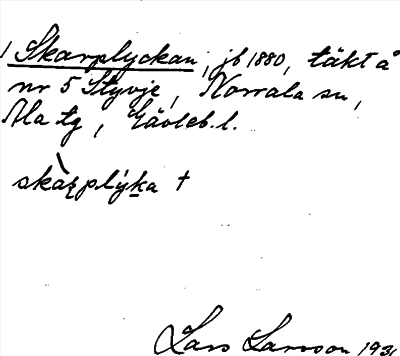 1 Skarplyckan, jb 1880, täkt å
nr 5 Styvje, Norrala sn,
Ala tg, Gävleb. l.
skàrplýka †
Lars Larsson 1931